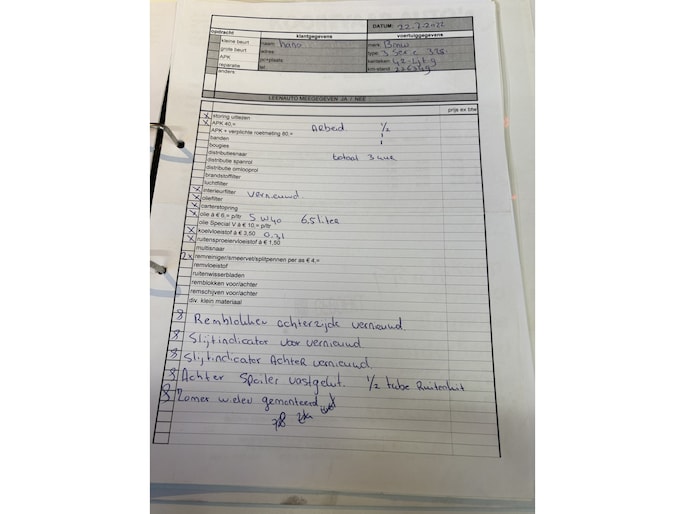 DATUM: 22-7-2022
opdracht klantgegevens voertuiggegevens
kleine beurt naam: hans merk: Bmw
grote beurt adres: type: 3 Serie 325i
APK pc+plaats kenteken:
reparatie tel km-stand:
anders
LEENAUTO MEEGEGEVEN JA / NEE
prijs ex btw
x storing uitlezen
x APK 40,= Arbeid 1/2
APK + verplichte roetmeting 80,=
banden
bougies
distributiesnaar totaal 3 uur
distributie spanrol
distributie omlooprol
brandstoffilter
luchtfilter
x interieurfilter vernieuwd
x oliefilter
x carterstopring
x olie à € 6,= p/ltr 5w40 6.5 liter
olie Special V à € 10,= p/ltr
x koelvloeistof à € 3,50 0.3l
x ruitensproeiervloeistof à € 1,50
multisnaar
2x remreiniger/smeervet/splitpennen per as € 4,=
remvloeistof
ruitenwisserbladen
remblokken voor/achter
remschijven voor/achter
div. klein materiaal
Remblokken achterzijde vernieuwd.
Slijtindicator voor vernieuwd
Slijtindicator Achter vernieuwd.
Achter Spoiler vastgekit. 1/2 tube Ruitenkit
Zomer wielen gemonteerd